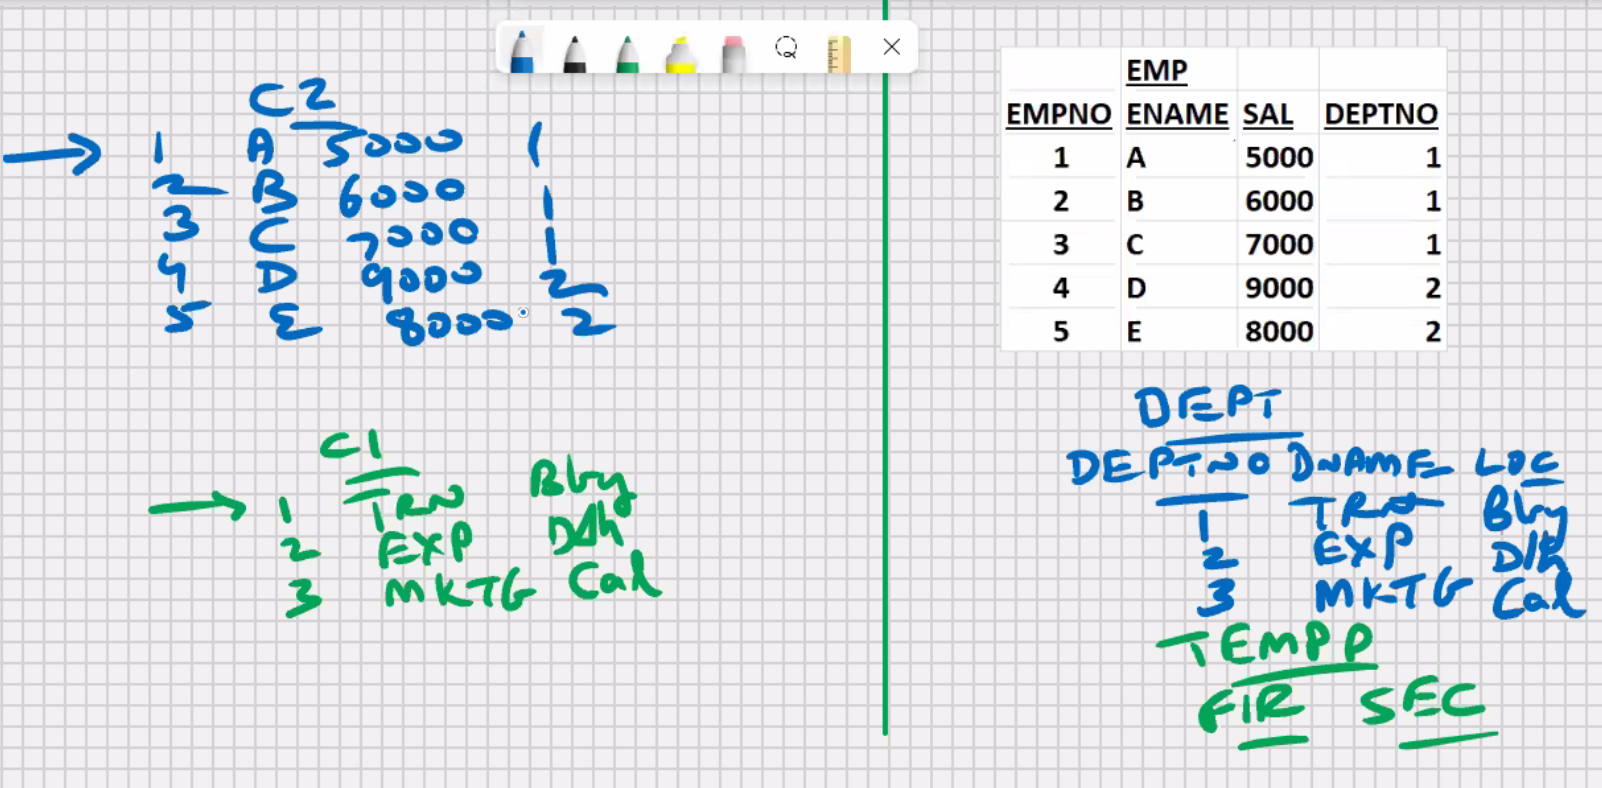 C2
1 A 5000 1
2 B 6000 1
3 C 7000 1
4 D 9000 2
5 E 8000 2
C1
1 TRN Bby
2 EXP Dlh
3 MKTG Cal
EMP
EMPNO ENAME SAL DEPTNO
1 A 5000 1
2 B 6000 1
3 C 7000 1
4 D 9000 2
5 E 8000 2
DEPT
DEPTNO DNAME LOC
1 TRN Bby
2 EXP Dlh
3 MKTG Cal
TEMPP
FIR SEC